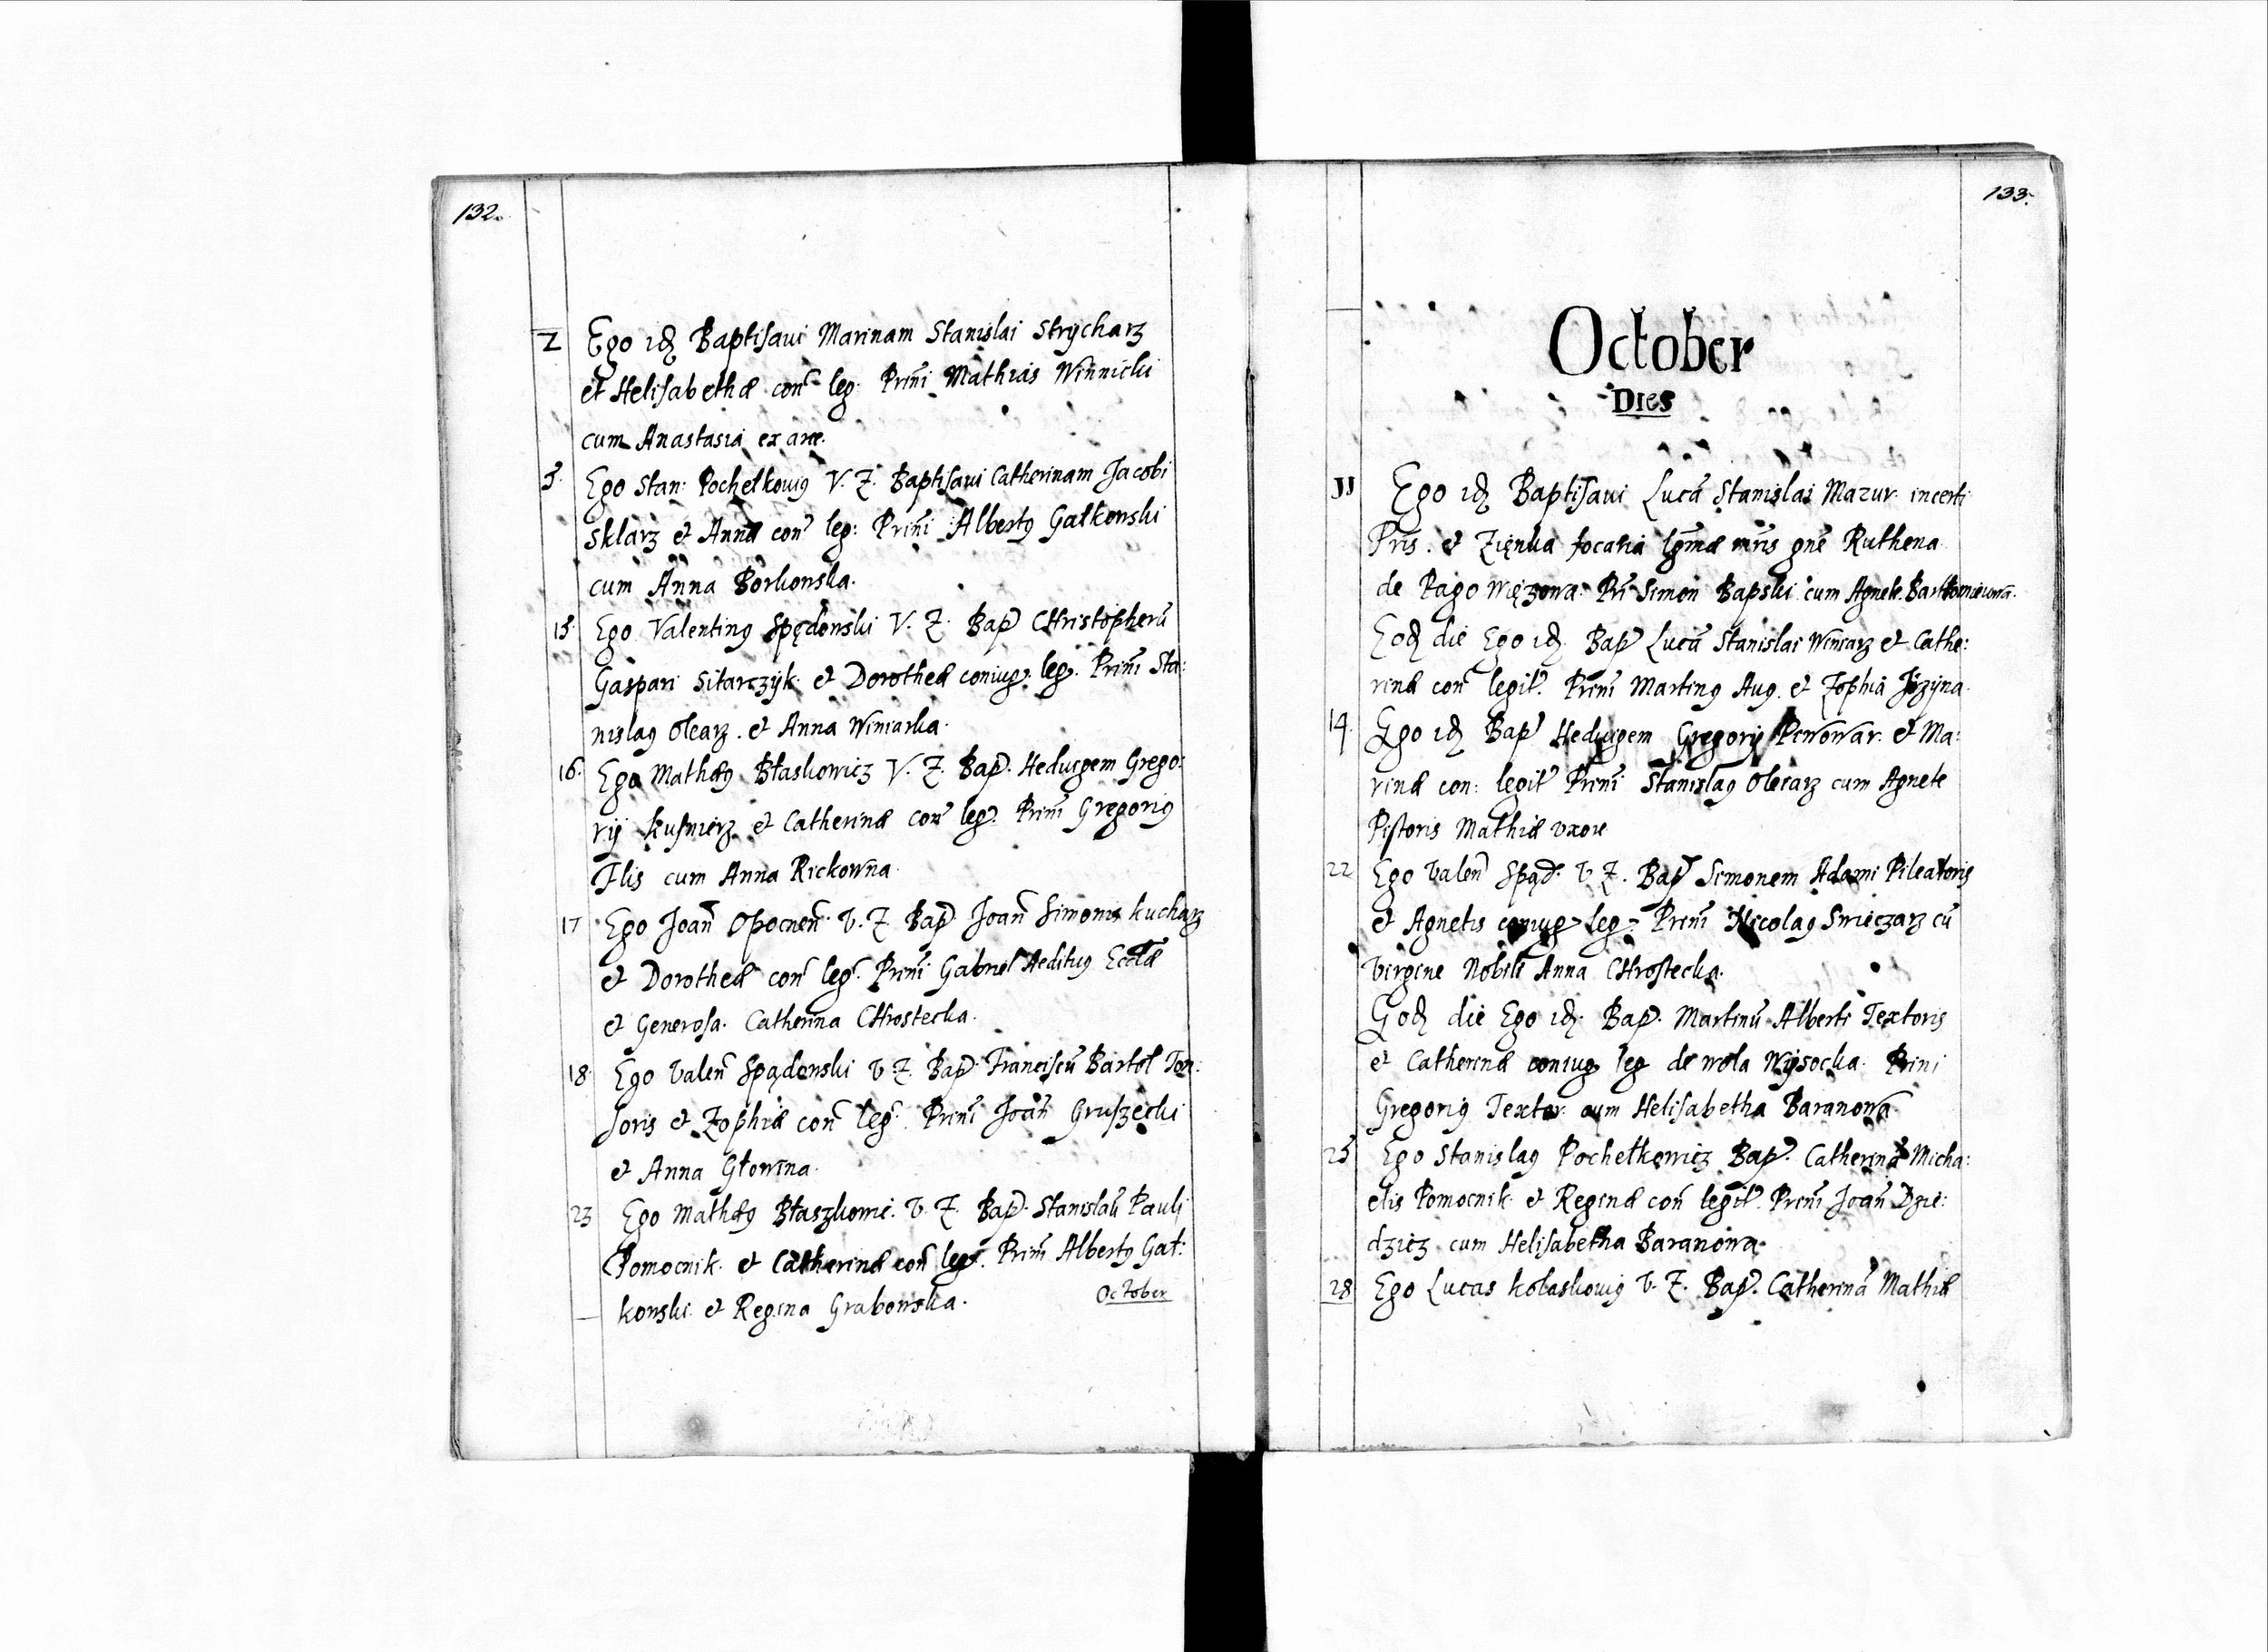 132.
2 Ego idz Baptisaui Marinam Stanislai Strycharz
et Helisabethæ con leg. Prini Mathias Winnicki
cum Anastasia ex arce.
3. Ego Stan: Pochelkouig V. Z. Baptisaui Catherinam Jacobi
Sklarz et Annæ con leg: Prini Albertg Gałkowski
cum Anna Borkowska.
15. Ego Valenting Spędowski V. Z. Bap Christopherũ
Gaspari Sitarczyk et Dorotheæ coniug. leg. Prini Sta:
nislag Olearz. et Anna Winiarka.
16. Ego Mathæg Błaskowicz V. Z. Bap. Heduigem Grego:
rij Kusnierz et Catherinæ con leg. Prini Gregorig
Ilis cum Anna Rickowna.
17 Ego Joañ Opocneñ. V. Z. Bap Joañ Simonis Kucharz
et Dorotheæ con leg. Prini Gabriel Aeditug Eccłæ
et Generosa. Catherina Chrostecka.
18. Ego Valeñ Spądowski V Z. Bap. Franciscũ Bartol Ton:
soris et Zophiæ con leg. Prini Joañ Gruszecki
et Anna Głowina.
23 Ego Mathæg Błaszkowic. V. Z. Bap. Stanislaũ Pauli
Pomocnik. et Catherinæ con leg. Prini Albertg Gał:
kowski et Regina Grabowska.
October
133.
October
Dies
11 Ego idz Baptisaui Lucã Stanislai Mazur. incerti
Pris. et Zięnka focaria lgmæ mris gne Ruthena
de Pago Więzowa. Pri Simon Bapski cum Agnete
Eodz die Ego idz. Bap Lucã Stanislai Winiarz et Cathe:
rinæ con legit. Prini Marting Aug. et Zophia
14. Ego idz Bap Heduigem Gregorij Piwowar. et Ma:
rinæ con: legit Prini Stanislag Olearz cum Agnete
Pistoris Mathiæ vxore
22 Ego Valeñ Spąd. V. Z. Bap Simonem Adami Pileatoris
et Agnetis coniug leg. Prini Nicolag Swieczarz cũ
Virgine Nobili Anna Chrostecka.
Eodz die Ego idz. Bap. Martinũ Alberti Textoris
et Catherinæ coniug leg de Wola Wysocka. Prini
Gregorig Textor. cum Helisabetha Baranowa.
25 Ego Stanislag Pochełkowicz Bap. Catherinã Micha:
elis Pomocnik. et Reginæ con legit. Prini Joañ Dzie:
dzicz cum Helisabetha Baranowa.
28 Ego Lucas Kołaskouig V. Z. Bap. Catherinã Mathiæ